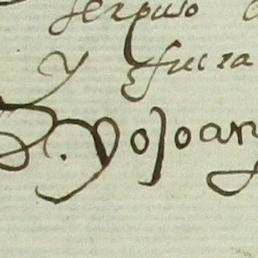 se puso
y fuera
Yo Joan